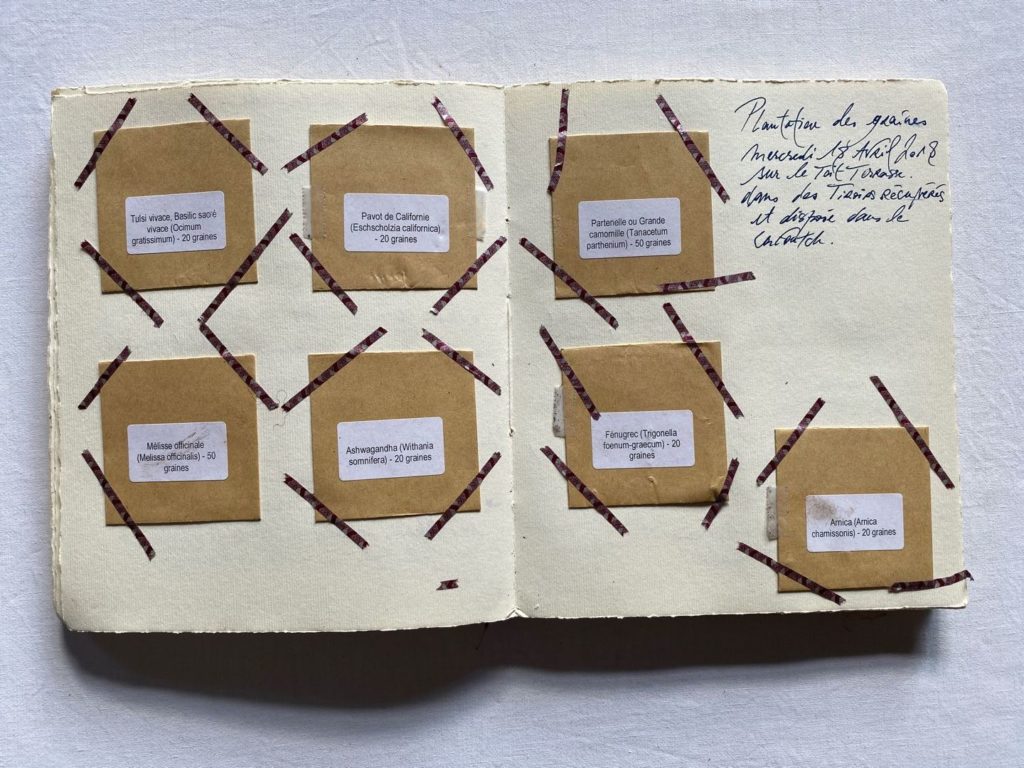 Tulsi vivace, Basilic sacré
vivace (Ocimum
gratissimum) - 20 graines
Pavot de Californie
(Eschscholzia californica)
- 20 graines
Mélisse officinale
(Melissa officinalis) - 50
graines
Ashwagandha (Withania
somnifera) - 20 graines
Partenelle ou Grande
camomille (Tanacetum
parthenium) - 50 graines
Plantation des graines
mercredi 18 Avril 2018
sur le Toit Terrasse.
dans des Tiroirs Récupérés
et disposé dans le
Fénugrec (Trigonella
foenum-graecum) - 20
graines
Arnica (Arnica
chamissonis) - 20 graines